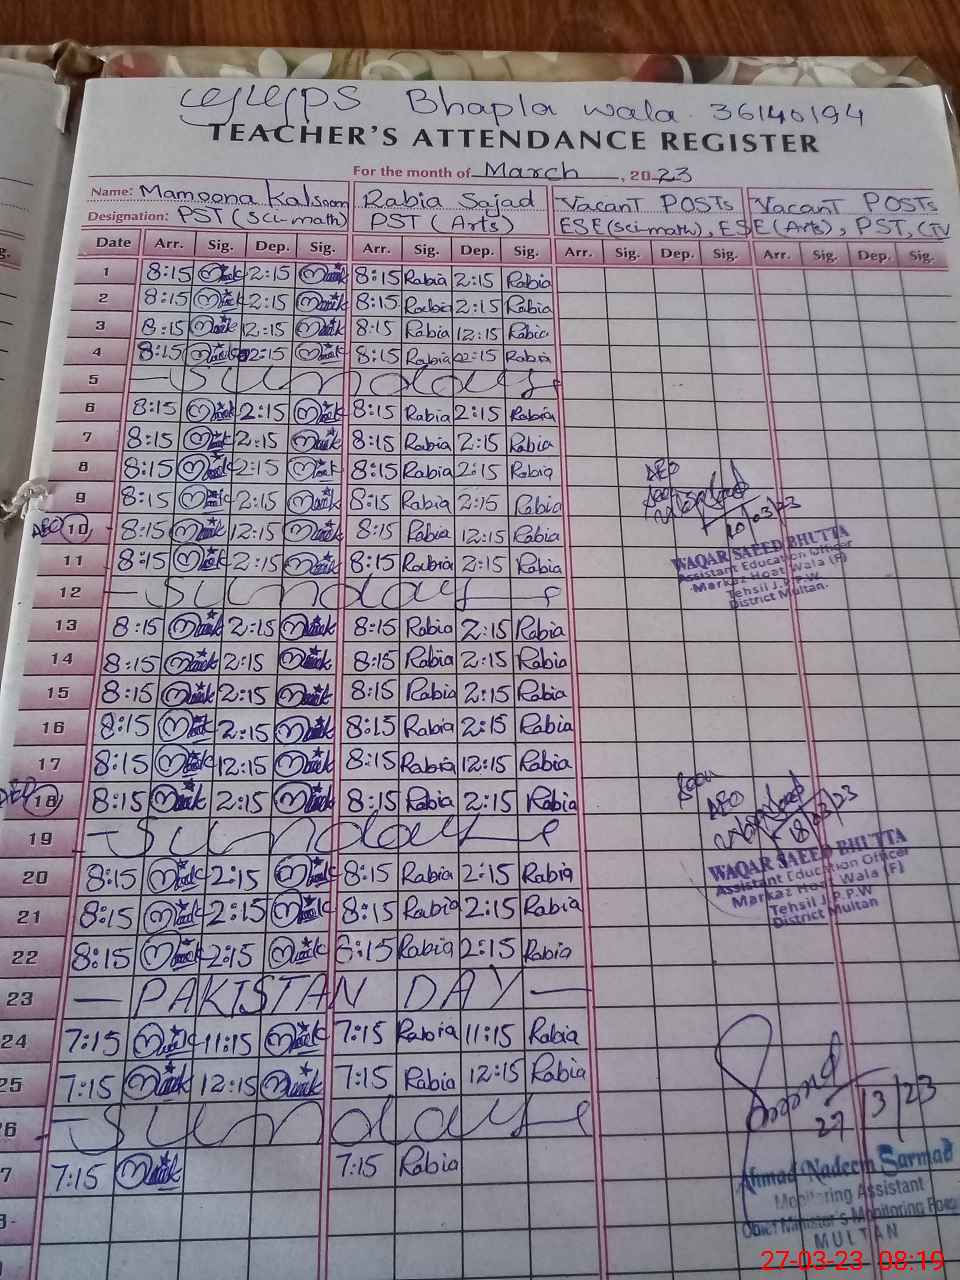 PS Bhapla wala. 36140194
TEACHER'S ATTENDANCE REGISTER
For the month of March, 2023
Name: Mamoona Kalsoom Rabia Sajad Vacant POSTs Vacant POSTs
Designation: PST (Sci-math) PST (Arts) ESE(sci-math), ESE(Arts), PST, (TV
Date Arr. Sig. Dep. Sig. Arr. Sig. Dep. Sig. Arr. Sig. Dep. Sig. Arr. Sig. Dep. Sig.
1 8:15 2:15 8:15 Rabia 2:15 Rabia
2 8:15 2:15 8:15 Rabia 2:15 Rabia
3 8:15 12:15 8:15 Rabia 12:15 Rabia
4 8:15 2:15 8:15 Rabia 2:15 Rabia
5 — Sunday
6 8:15 2:15 8:15 Rabia 2:15 Rabia
7 8:15 2:15 8:15 Rabia 2:15 Rabia
8 8:15 2:15 8:15 Rabia 2:15 Rabia
9 8:15 2:15 8:15 Rabia 2:15 Rabia
AEO 10 8:15 12:15 8:15 Rabia 12:15 Rabia
11 8:15 2:15 8:15 Rabia 2:15 Rabia
12 — Sunday
13 8:15 2:15 8:15 Rabia 2:15 Rabia
14 8:15 2:15 8:15 Rabia 2:15 Rabia
15 8:15 2:15 8:15 Rabia 2:15 Rabia
16 8:15 2:15 8:15 Rabia 2:15 Rabia
17 8:15 12:15 8:15 Rabia 12:15 Rabia
18 8:15 2:15 8:15 Rabia 2:15 Rabia
19 — Sunday
20 8:15 2:15 8:15 Rabia 2:15 Rabia
21 8:15 2:15 8:15 Rabia 2:15 Rabia
22 8:15 2:15 8:15 Rabia 2:15 Rabia
23 — PAKISTAN DAY —
24 7:15 11:15 7:15 Rabia 11:15 Rabia
25 7:15 12:15 7:15 Rabia 12:15 Rabia
6 — Sunday
7 7:15 7:15 Rabia
AEO
10/03/23
WAQAR SAEED BHUTTA
Assistant Education Officer
Markaz Hoat Wala (F)
Tehsil J.P.P.W.
District Multan.
AEO
18/03/23
WAQAR SAEED BHUTTA
Assistant Education Officer
Markaz Hoat Wala (F)
Tehsil J.P.P.W
District Multan
27/3/23
Ahmad Nadeem Sarmad
Monitoring Assistant
Chief Minister's Monitoring Force
MULTAN
27-03-23 08:19